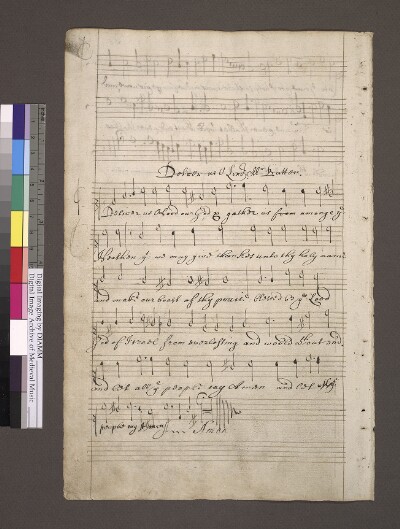 Deliver us O Lord
Deliver us o Lord our god & gather us from amonge yᵉ
Heathen yᵗ we may give thankes unto thy holy name
and make our boast of thy praise Blessed be yᵉ Lord
god of Israel from everlasting and world without end
and let all yᵉ people say Amen and let all yᵉ
people say Amen Amen
Digital Imaging by DIAMM
Digital Image Archive of Medieval Music